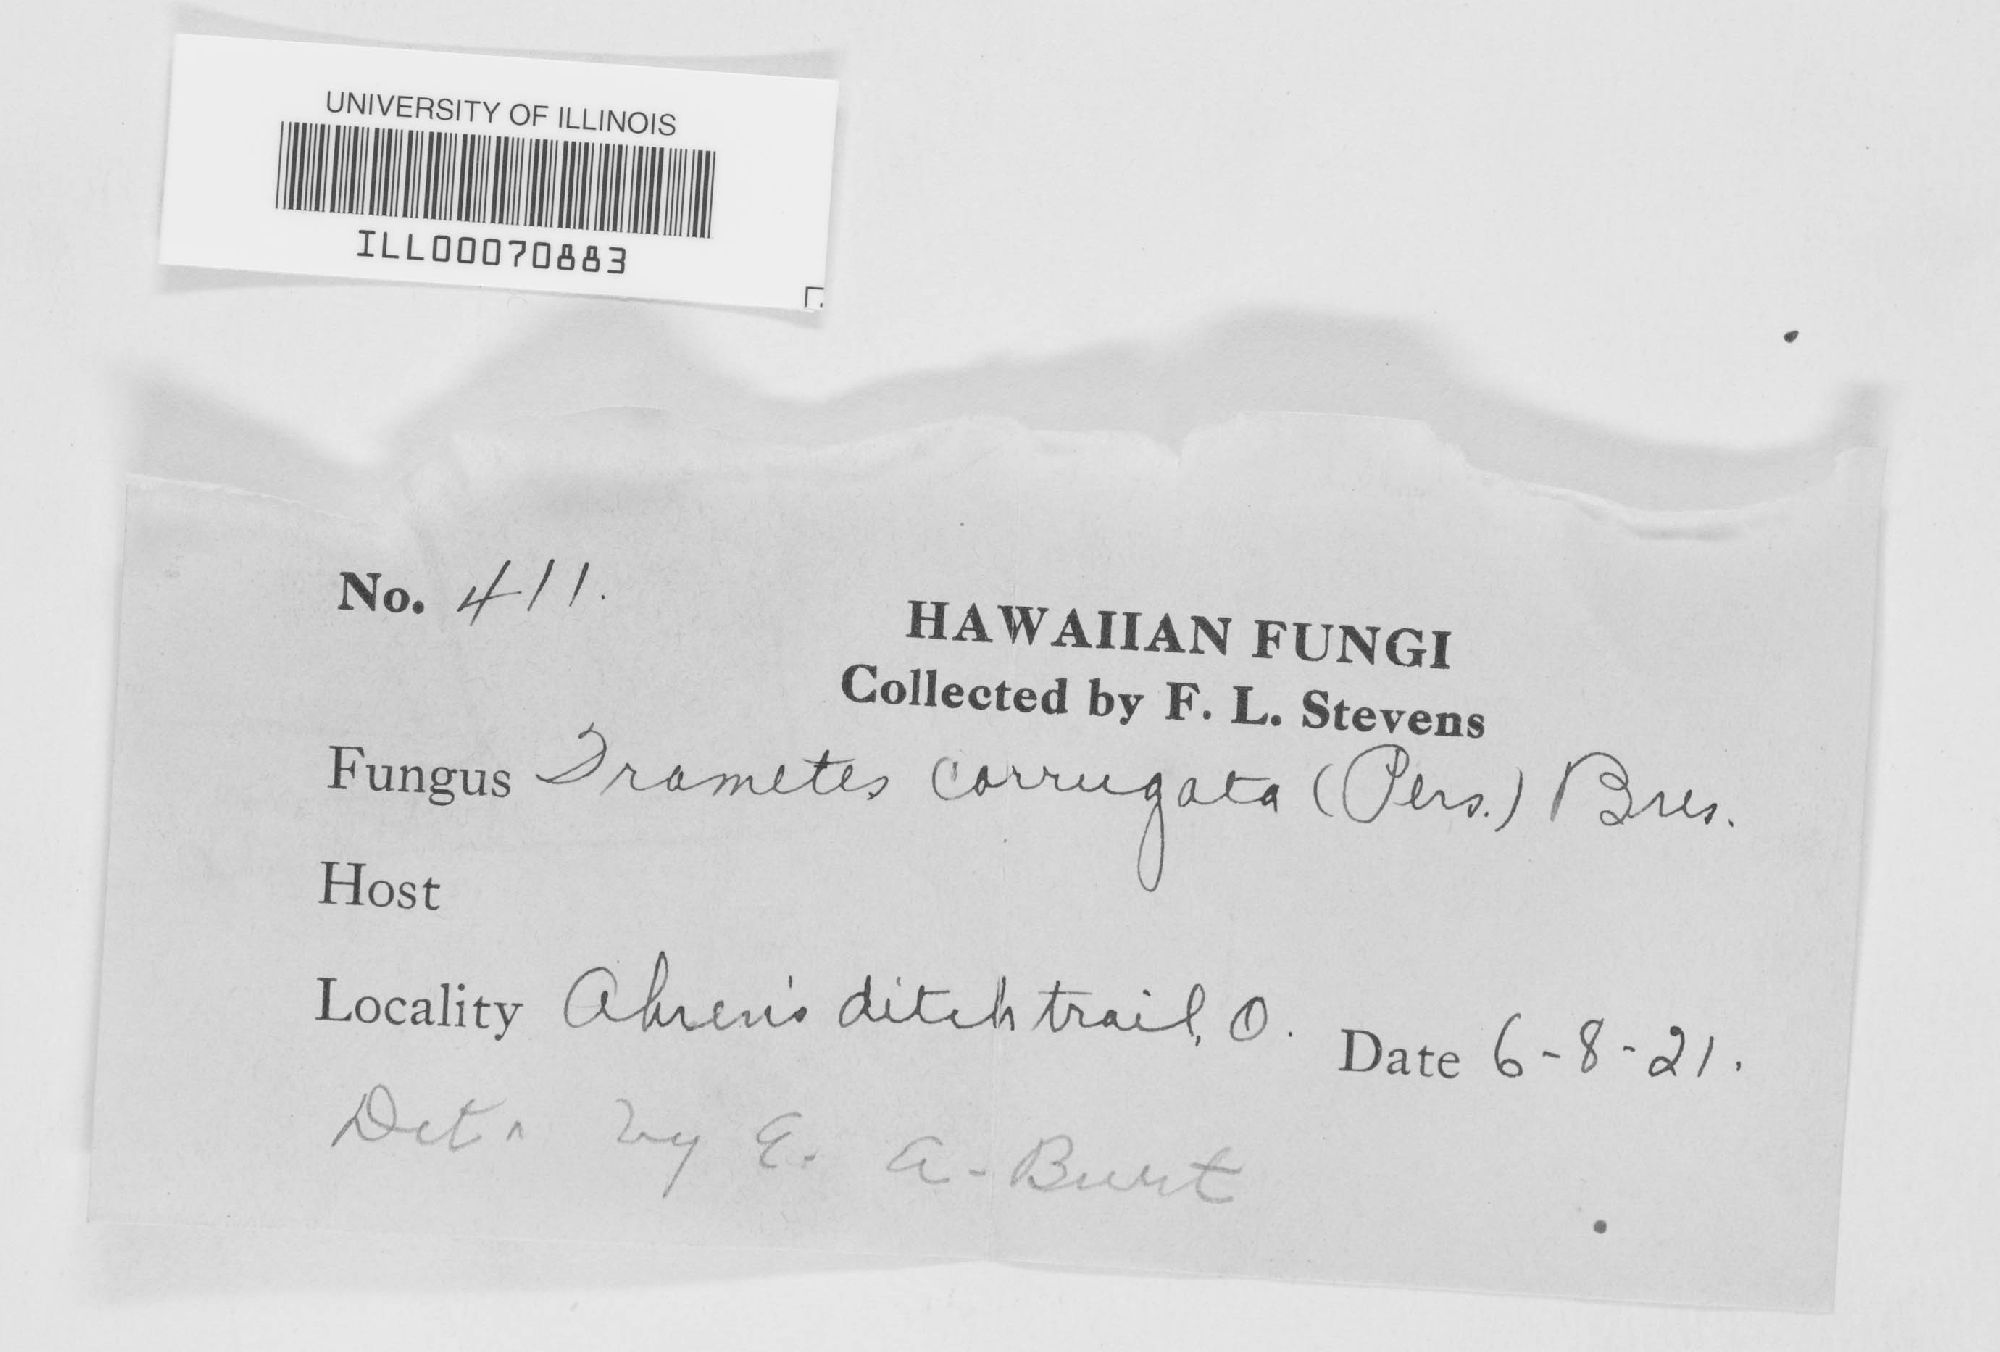 UNIVERSITY OF ILLINOIS
ILL00070883
No. 411.
HAWAIIAN FUNGI
Collected by F. L. Stevens
Fungus Trametes corrugata (Pers.) Bres.
Host
Locality Ahren's ditch trail, O. Date 6-8-21.
Det. by E. A. Burt